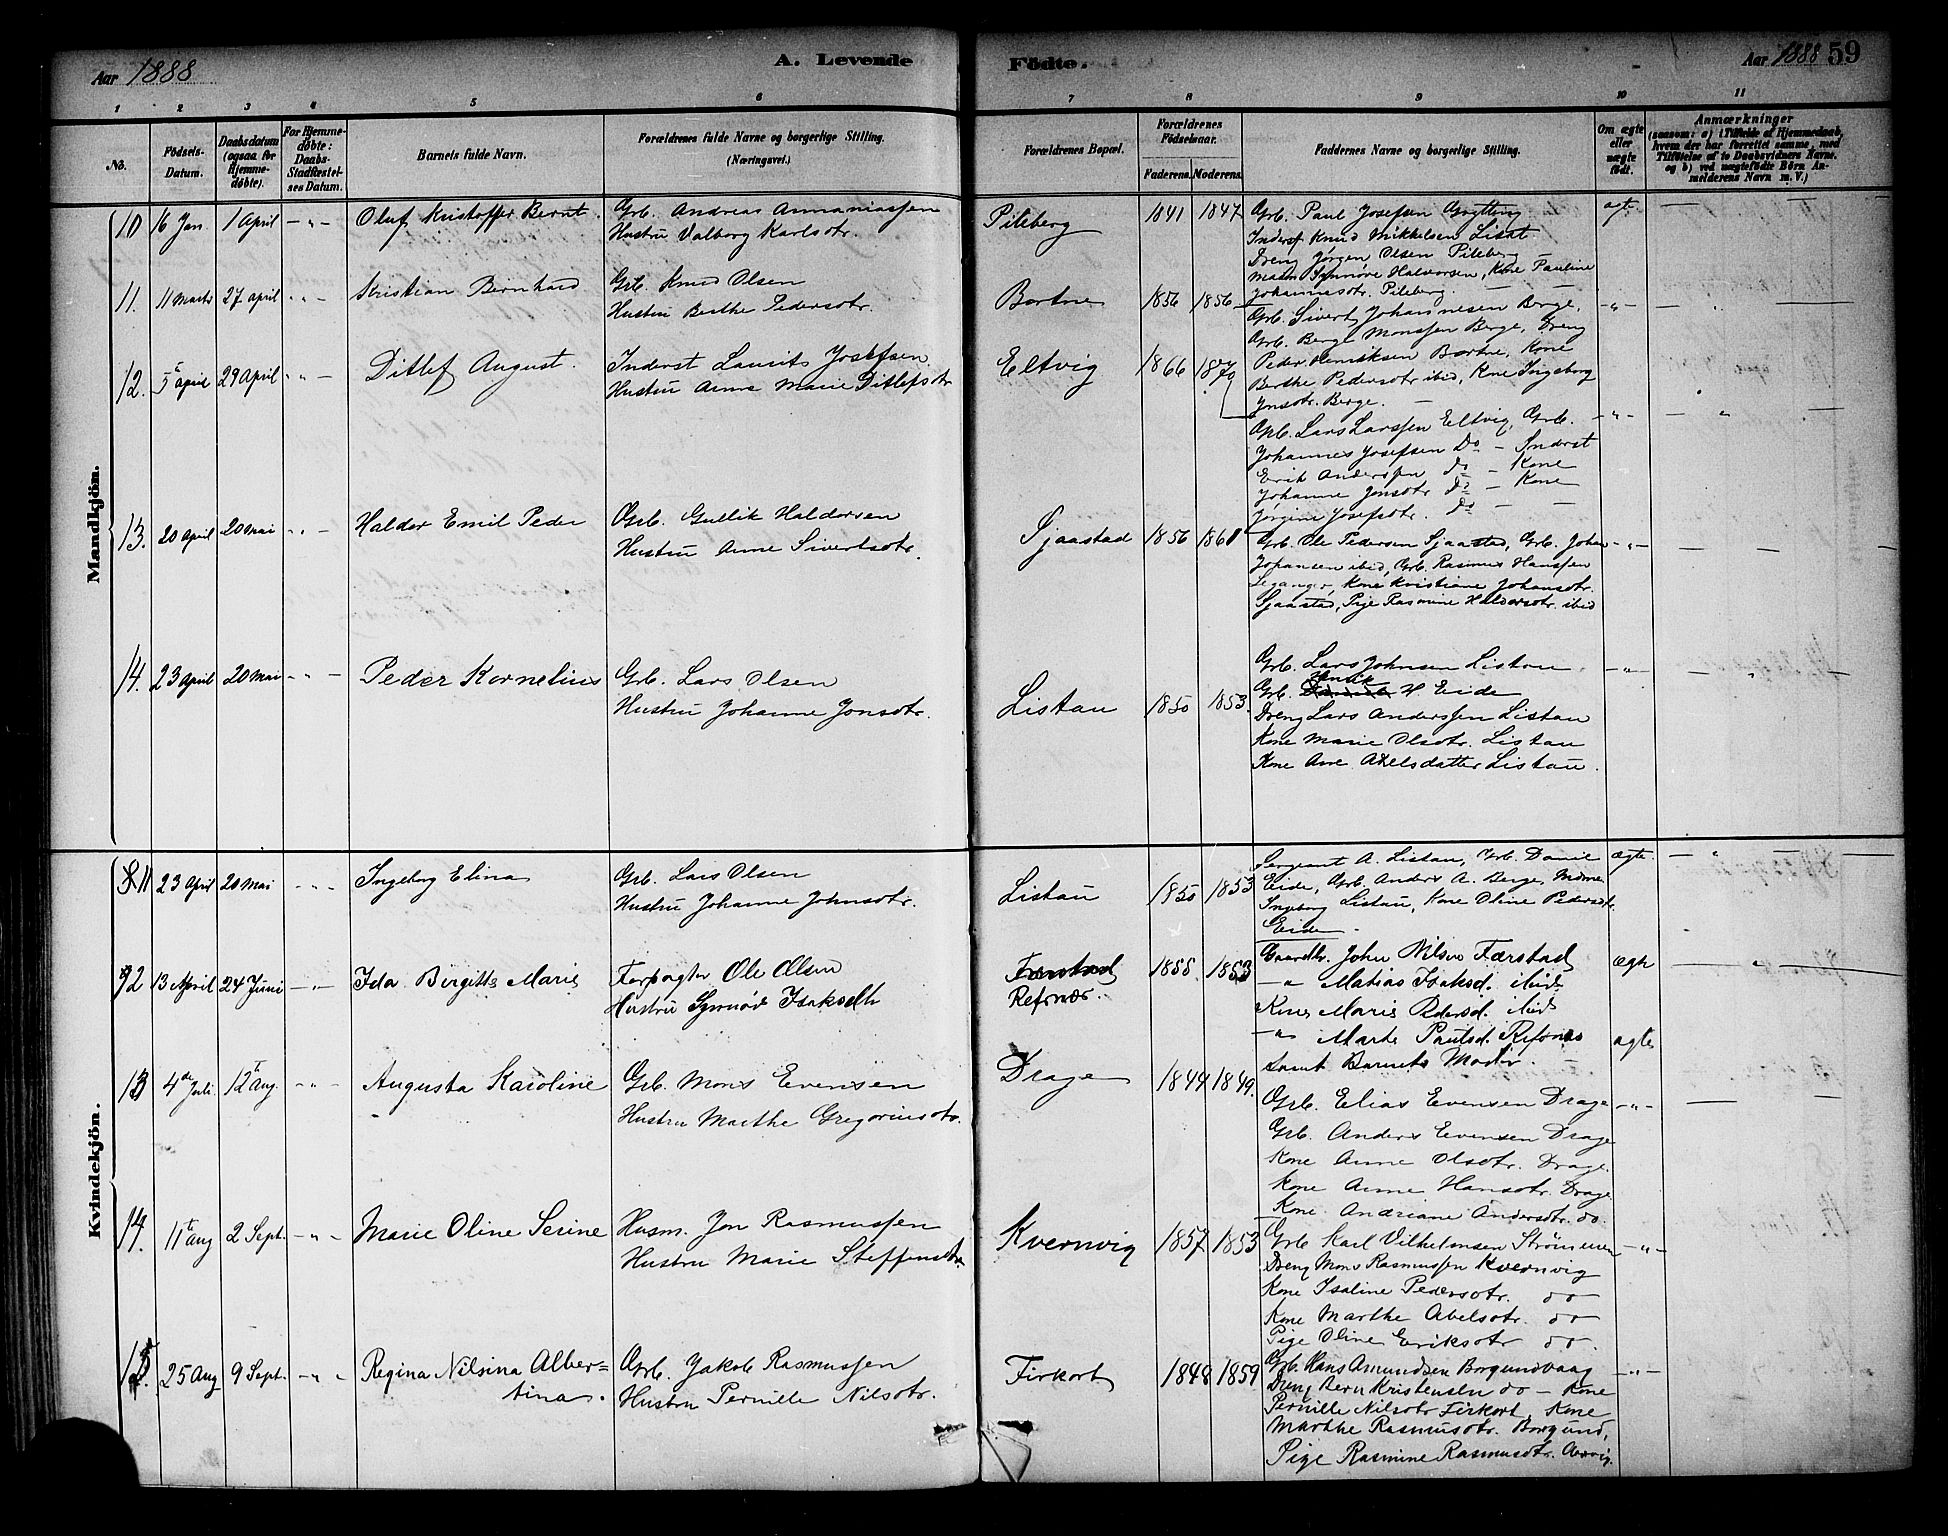 Aar 1888
A. Levende
Födte.
Aar 1888 59
1 2 3 4 5 6 7 8 9 10 11
No.
Födsels-Datum.
Daabsdatum (ogsaa for Hjemmedöbte).
For Hjemmedöbte: Daabs-Stadfæstelses Datum.
Barnets fulde Navn.
Forældrenes fulde Navne og borgerlige Stilling. (Næringsvei.)
Forældrenes Bopæl.
Forældrenes Födselsaar.
Faderens. Moderens.
Faddernes Navne og borgerlige Stilling.
Om ægte eller uægte födt.
Anmærkninger
(saasom: a) i Tilfælde af Hjemmedaab, hvem der har forrettet samme, med Tilföielse af to Daabsvidners Navne. og b) ved uægtefödte Börn Anmelderens Navn m. V.)
Mandkjön.
10 16 Jan. 1 April - „ - Oluf Kristoffer Bernt.
Grb. Andreas Annaniassen
Hustru Valborg Karlsdtr.
Pileberg 1841 1847
Grb. Paul Josefsen Grytting
Inderst Knud Mikkelsen Listat
Dreng Jørgen Olsen Pileberg
Madm Synnøve Halvorsen, Kone Pauline
Johannesdtr. Pileberg. ægt.
11. 11 Marts 27 April „ - Kristian Bernhard
Grb. Knud Olsen
Hustru Berthe Pedersdtr.
Bortne 1856 1856
Grb. Sivert Johannesen Berge,
Grb. Berge Monssen Berge, Dreng
Peder Henriksen Bortne, Kone
Berthe Pedersdtr ibid, Kone Ingeborg
Jonsdtr. Berge. - „ -
12. 5te April 29 April „ - Ditlef August.
Inderst Laurits Josefsen
Hustru Anna Marie Ditlefsdtr
Eltvig 1866
Grb. Lars Larssen Eltvig, Grb.
Johannes Josefsen Do - Inderst
Erik Anderssen do - Kone
Johanne Jonsdtr do - Kone
Jørgine Josefsdtr. do - „ -
13. 20 April 20 Mai „ - Haldor Emil Peder
Grb. Gullik Haldorsen
Hustru Anne Sivertsdtr.
Sjaastad 1856 1861
Grb. Ole Pedersen Sjaastad, Grb. Johan
Johansen ibid, Grb. Rasmus Hanssen
Leganger, Kone Kristiane Johansdtr.
Sjaastad, Pige Rasmine Haldorsdtr. ibid - „ -
14. 23 April 20 Mai - „ - Peder Kornelius
Grb. Lars Olsen
Hustru Johanne Jonsdtr.
Listau 1850 1853.
Grb. Lars Johnsen Listau
Grb. H Eide
Dreng Lars Anderssen Listau
Kone Marie Olsdtr. Listau
Kone Ane Akelsdatter Listau. - „ -
Kvindekjön.
11 23 April 20 Mai „ - Ingeborg Elina
Grb. Lars Olsen
Hustru Johanne Johnsdtr.
Listau 1850 1853
Sergeant A. Listau, Grb. Daniel
Eide, Grb. Anders A. Berge, Madme
Ingeborg Listau, Kone Oline Pedersdtr.
Eide - ægte.
12 13 April 24 Juni - „ - Ida Birgitte Marie
Forpagter Ole Olsen
Hustru Synnøve Isaksdtr
Refsnæs. 1855 1853
Gaardbr. John Nilsen Færstad
- „ Matias Isaksd. ibid
Kone Marie Pedersd. ibid
- „ Marte Paulsd. Refsnæs
samt Barnets Moder. ægte
ægte
13 4de Juli 12te Aug. - „ - Augusta Karoline
Grb. Mons Evensen
Hustru Marthe Gregoriusdtr.
Drage 1844 1849.
Grb. Elias Evensen Drage
Grb. Anders Evensen Drage
Kone Anne Olsdtr. Drage.
Kone Anne Hansdtr. Drage
Kone Andriane Andersdtr. do. - „ -
14. 11te Aug 2 Sept. - „ - Marie Oline Serine
Husm. Jon Rasmussen
Hustru Marie Steffensdtr
Kvernvig 1857 1853
Grb Karl Vilhelmsen Strømmen
Dreng Mons Rasmussen Kvernvig
Kone Isaline Pedersdtr. do
Kone Marthe Abelsdtr. do
Pige Oline Eriksdtr do - „ -
15. 25 Aug 9 Sept. - „ - Regina Nilsina Alber=
tina.
Grb. Jakob Rasmussen
Hustru Pernille Nilsdtr.
Firkort 1848 1859
Grb. Hans Amundsen Borgundvaag
Dreng Bern Kristensen do - Kone
Pernille Nilsdtr Firkort, Kone
Marthe Rasmusdtr. Borgund,
Pige Rasmine Rasmusdtr. - „ -